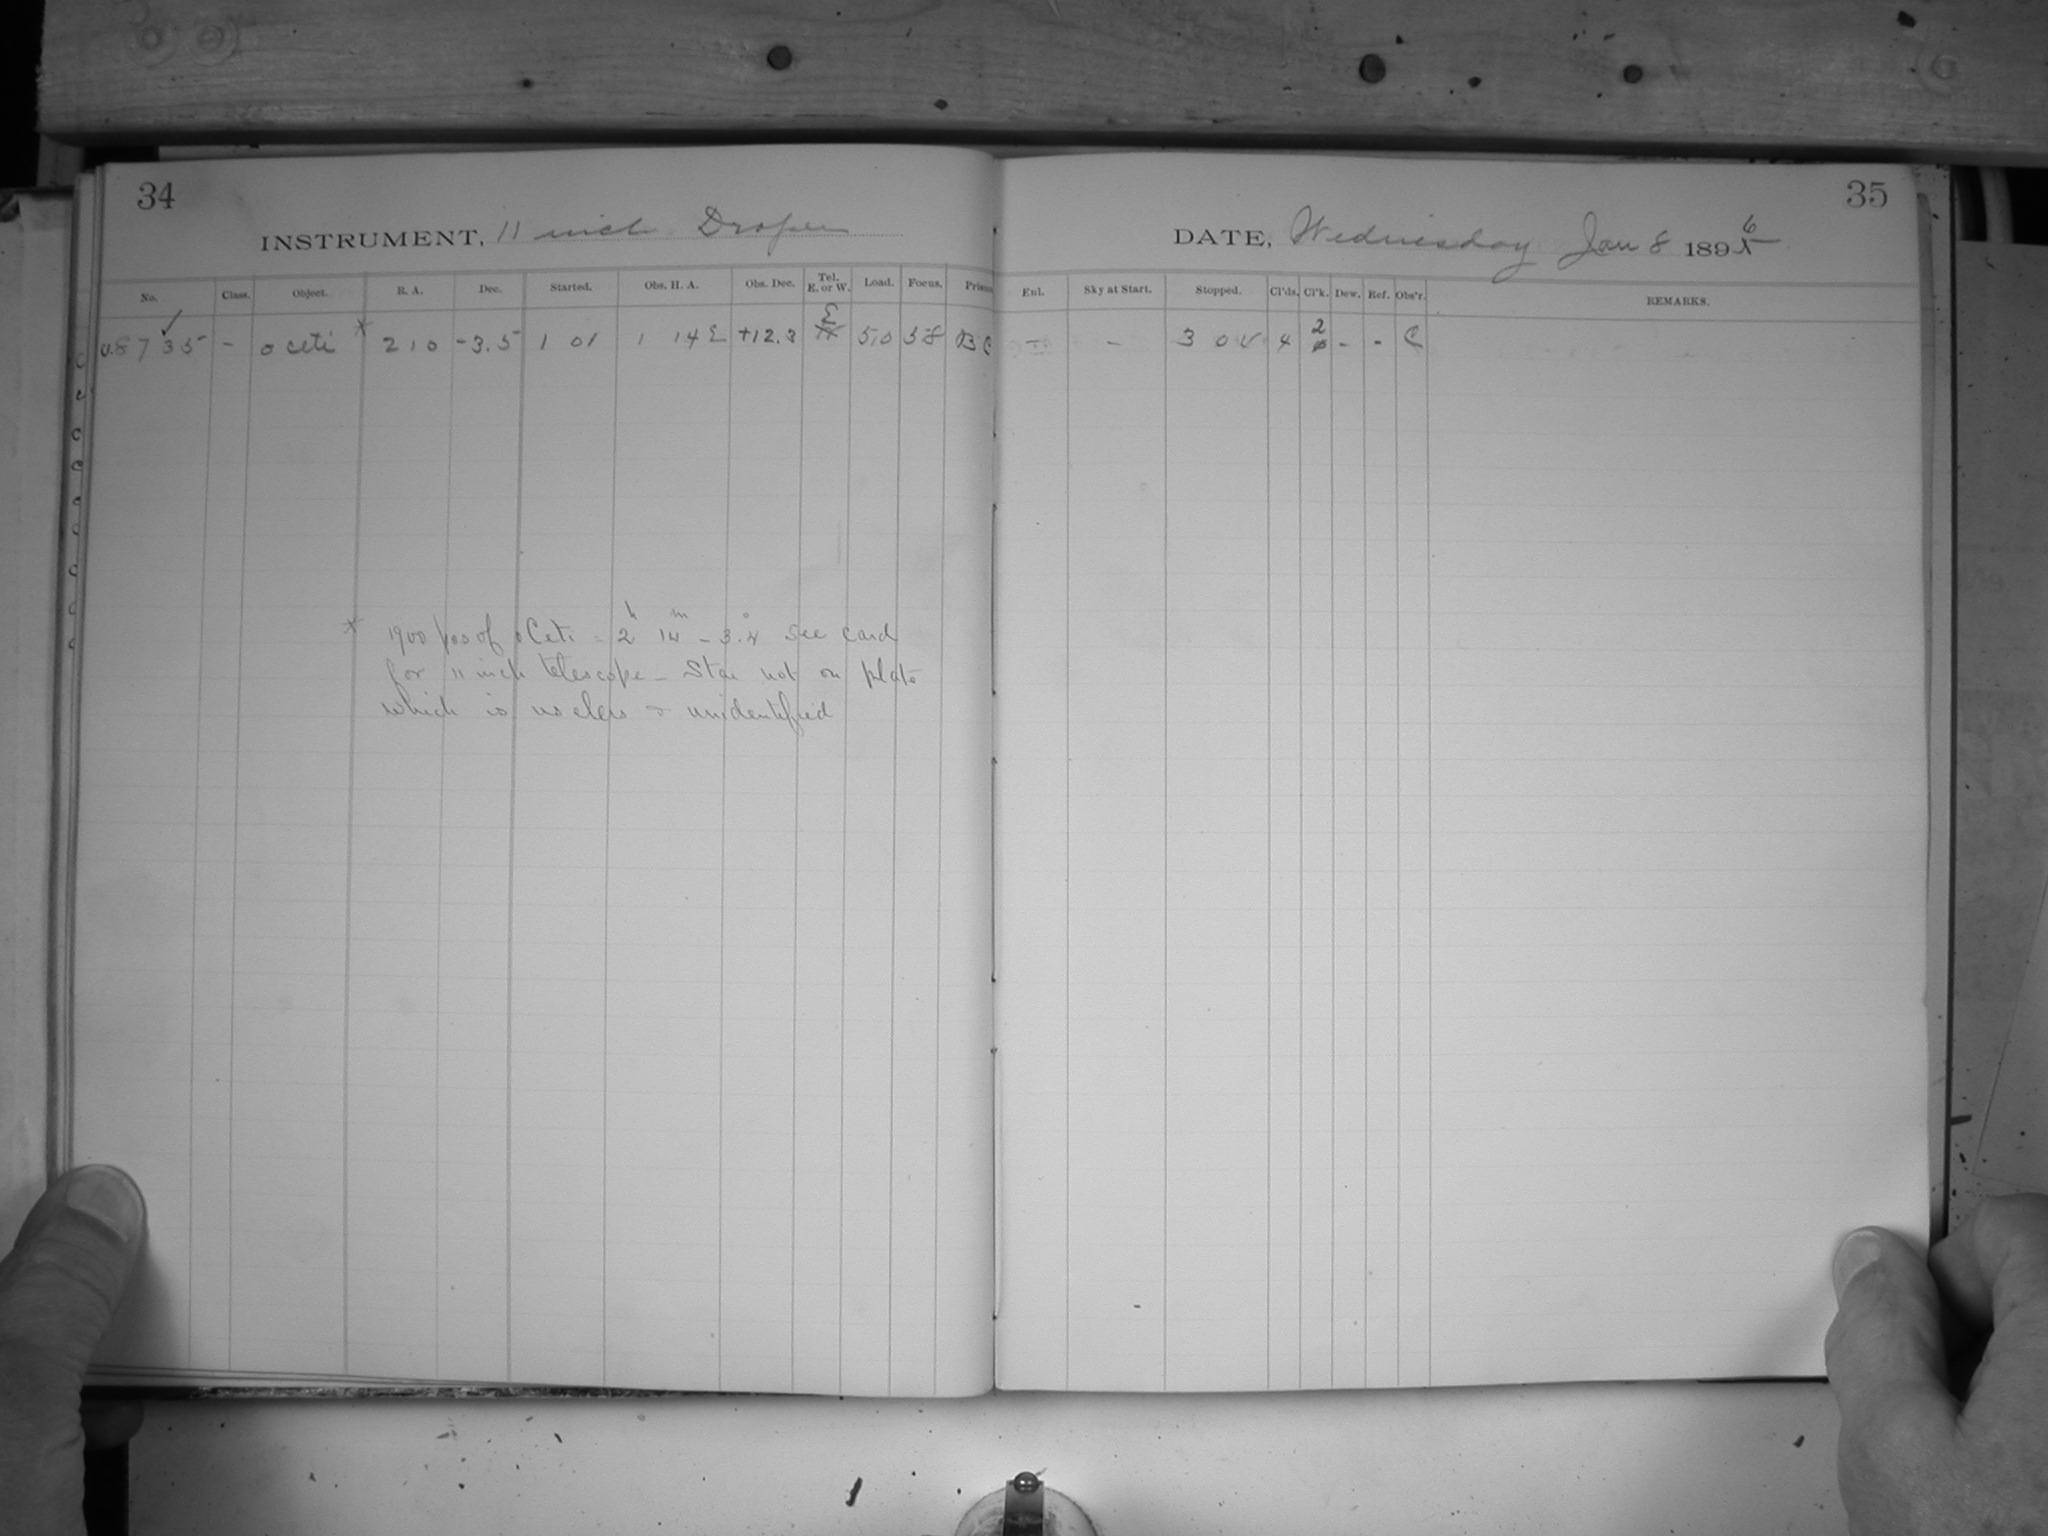 34
INSTRUMENT, 11 inch Draper
No. Class. Object. R. A. Dec. Started. Obs. H. A. Obs. Dec. Tel. E. or W. Load. Focus. Prism
8735 - o Ceti * 2 10 -3.5 1 01 1 14 E +12.3 E 5,0 58 B C
* 1900 pos of o Ceti = 2h 14m - 3°.4 See card
for 11 inch telescope - Star not on plate
which is useless & unidentified
35
DATE, Wednesday Jan 8 1896
Enl. Sky at Start. Stopped. Cl'ds. Cl'k. Dew. Ref. Obs'r. REMARKS.
- - 3 0 4 2 - - C